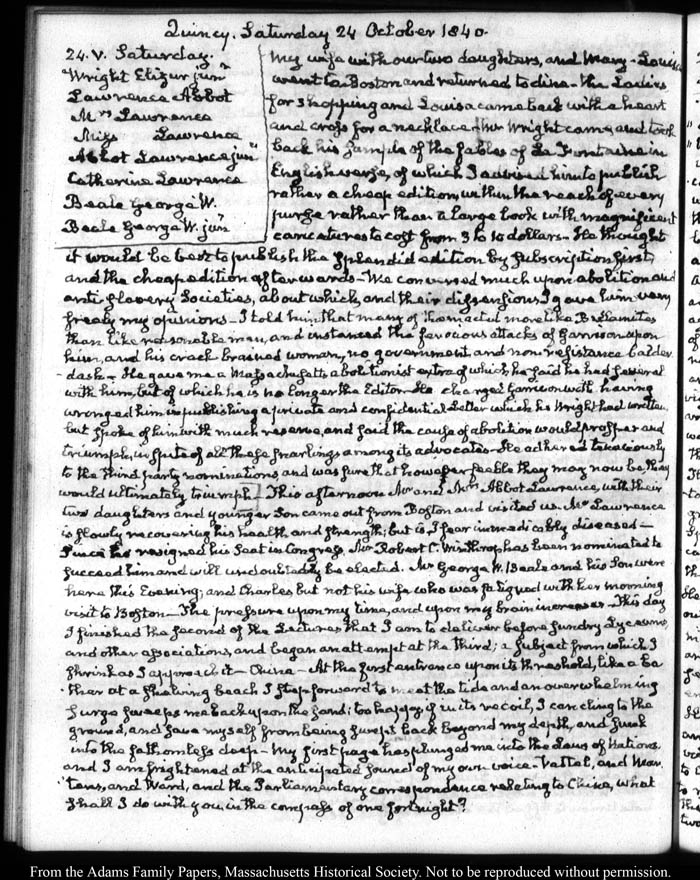 Quincy. Saturday 24 October 1840.
24. V. Saturday.
Wright Elizur junr
Lawrence Abbot
Mrs Lawrence
Miss Lawrence
Abbot Lawrence junr
Catherine Lawrence
Beale George W.
Beale George W. junr
My wife with our two daughters, and Mary-Louisa
went to Boston and returned to dine. The Ladies
for shopping and Louisa came back with a heart
and cross for a necklace. Mr Wright came, and took
back his sample of the fables of La Fontaine in
English verse, of which I advised him to publish
rather a cheap edition, within the reach of every
purse rather than a large book with magnificent
caricatures to cost from 3 to 10 dollars. He thought
it would be best to publish the splendid edition by subscription first,
and the cheap edition afterwards. We conversed much upon abolition and
anti slavery Societies, about which, and their dissensions, I gave him very
freely my opinions. I told him that many of them acted more like Bedlamites
than like reasonable men, and instanced the ferocious attacks of Garrison upon
him, and his crack brained woman, no government and non-resistance balder
dash. He gave me a Massachusetts abolitionist extra of which he said he had several
with him, but of which he is no longer the Editor. He charged Garrison with having
wronged him in publishing a private and confidential Letter which he Wright had written,
but spoke of him with much reserve, and said the cause of abolition would prosper and
triumph, in spite of all these snarlings among its advocates. He adhered tenaciously
to the third party nominations, and was sure that however feeble they may now be, they
would ultimately triumph. This afternoon Mr and Mrs Abbot Lawrence, with their
two daughters and younger Son came out from Boston and visited us. Mr Lawrence
is slowly recovering his health and strength; but is, I fear incurably diseased—
Since he resigned his Seat in Congress, Mr Robert C. Winthrop has been nominated to
succeed him and will undoubtedly be elected. Mr George W. Beale and his Son were
here this Evening; and Charles but not his wife who was fatigued with her morning
visit to Boston. The pressure upon my time, and upon my brain increases. This day
I finished the second of the Lectures that I am to deliver before sundry Lyceums,
and other associations, and began an attempt at the third; a subject from which I
shrink as I approach it—China—At the first entrance upon its threshold, like a ba
ther at a shelving beach I step forward to meet the tide and an overwhelming
surge sweeps me back upon the sand: too happy if in its recoil, I can cling to the
ground, and save myself from being swept back beyond my depth, and sunk
into the fathomless deep. My first page has plunged me into the Laws of Nations
and I am frightened at the anticipated sound of my own voice. Vattel, and Mar
tens, and Ward, and the Parliamentary correspondence relating to China, what
shall I do with you in the compass of one fortnight?
From the Adams Family Papers, Massachusetts Historical Society. Not to be reproduced without permission.